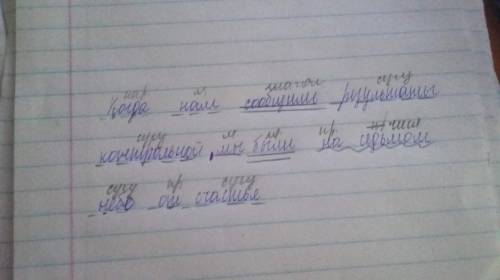 нар м глагол сущ
Когда нам сообщили результаты
сущ м гл пр числ
контрольной, мы были на седьмом
сущ пр сущ
небе от счастья